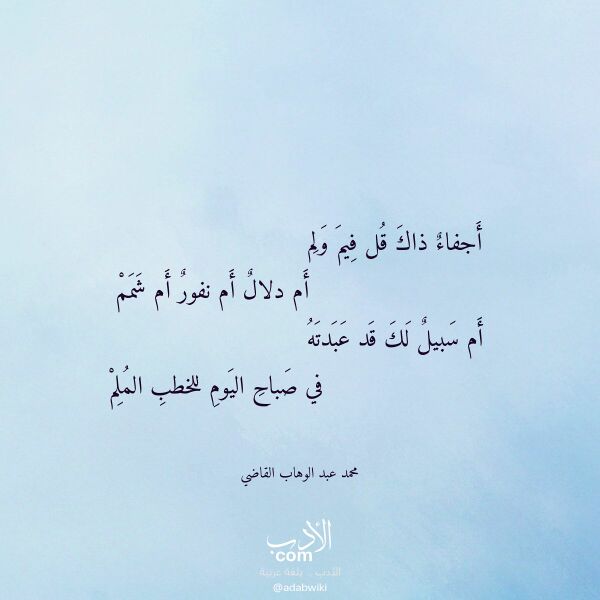 أَجفاءٌ ذاكَ قُل فِيمَ وَلِم
أَم دلالٌ أَم نفورٌ أَم شَمَمْ
أَم سَبيلٌ لَكَ قَد عَبَدتَهُ
في صَباحِ اليَومِ للخطبِ المُلِمْ
محمد عبد الوهاب القاضي
الأدب
com
الأدب .. بلغة عربية
@adabwiki